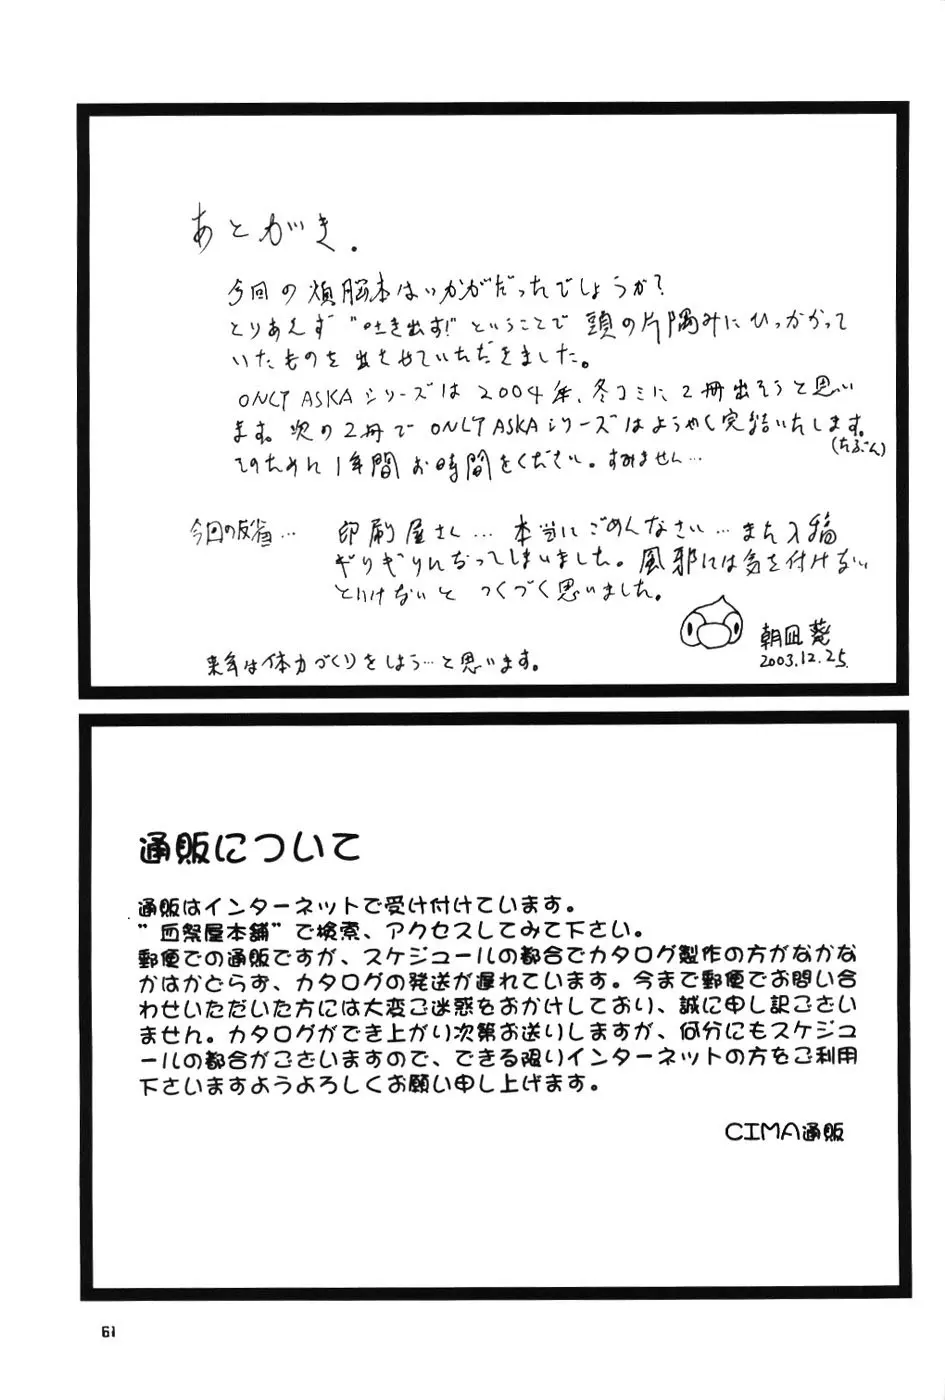 あとがき.
今回の煩脳本はいかがだったでしょうか?
とりあえず"吐き出す!"ということで頭の片隅みにひっかかって
いたものを出させていただきました。
ONLY ASKAシリーズは2004年、冬コミに2冊出そうと思い
ます。次の2冊でONLY ASKAシリーズはようやく完結いたします。
(たぶん)
そのために1年間お時間をください。すみません…
今回の反省… 印刷屋さん…本当にごめんなさい…また入稿
ギリギリになってしまいました。風邪には気を付けない
といけないと つくづく思いました。
朝凪 葵
2003.12.25
来年は体力づくりをしよう…と思います。
通販について
通販はインターネットで受け付けています。
"血祭屋本舗"で検索、アクセスしてみて下さい。
郵便での通販ですが、スケジュールの都合でカタログ製作の方がなかな
かはかどらず、カタログの発送が遅れています。今まで郵便でお問い合
わせいただいた方には大変ご迷惑をおかけしており、誠に申し訳ござい
ません。カタログができ上がり次第お送りしますが、何分にもスケジュ
ールの都合がございますので、できる限りインターネットの方をご利用
下さいますようよろしくお願い申し上げます。
CIMA通販
61